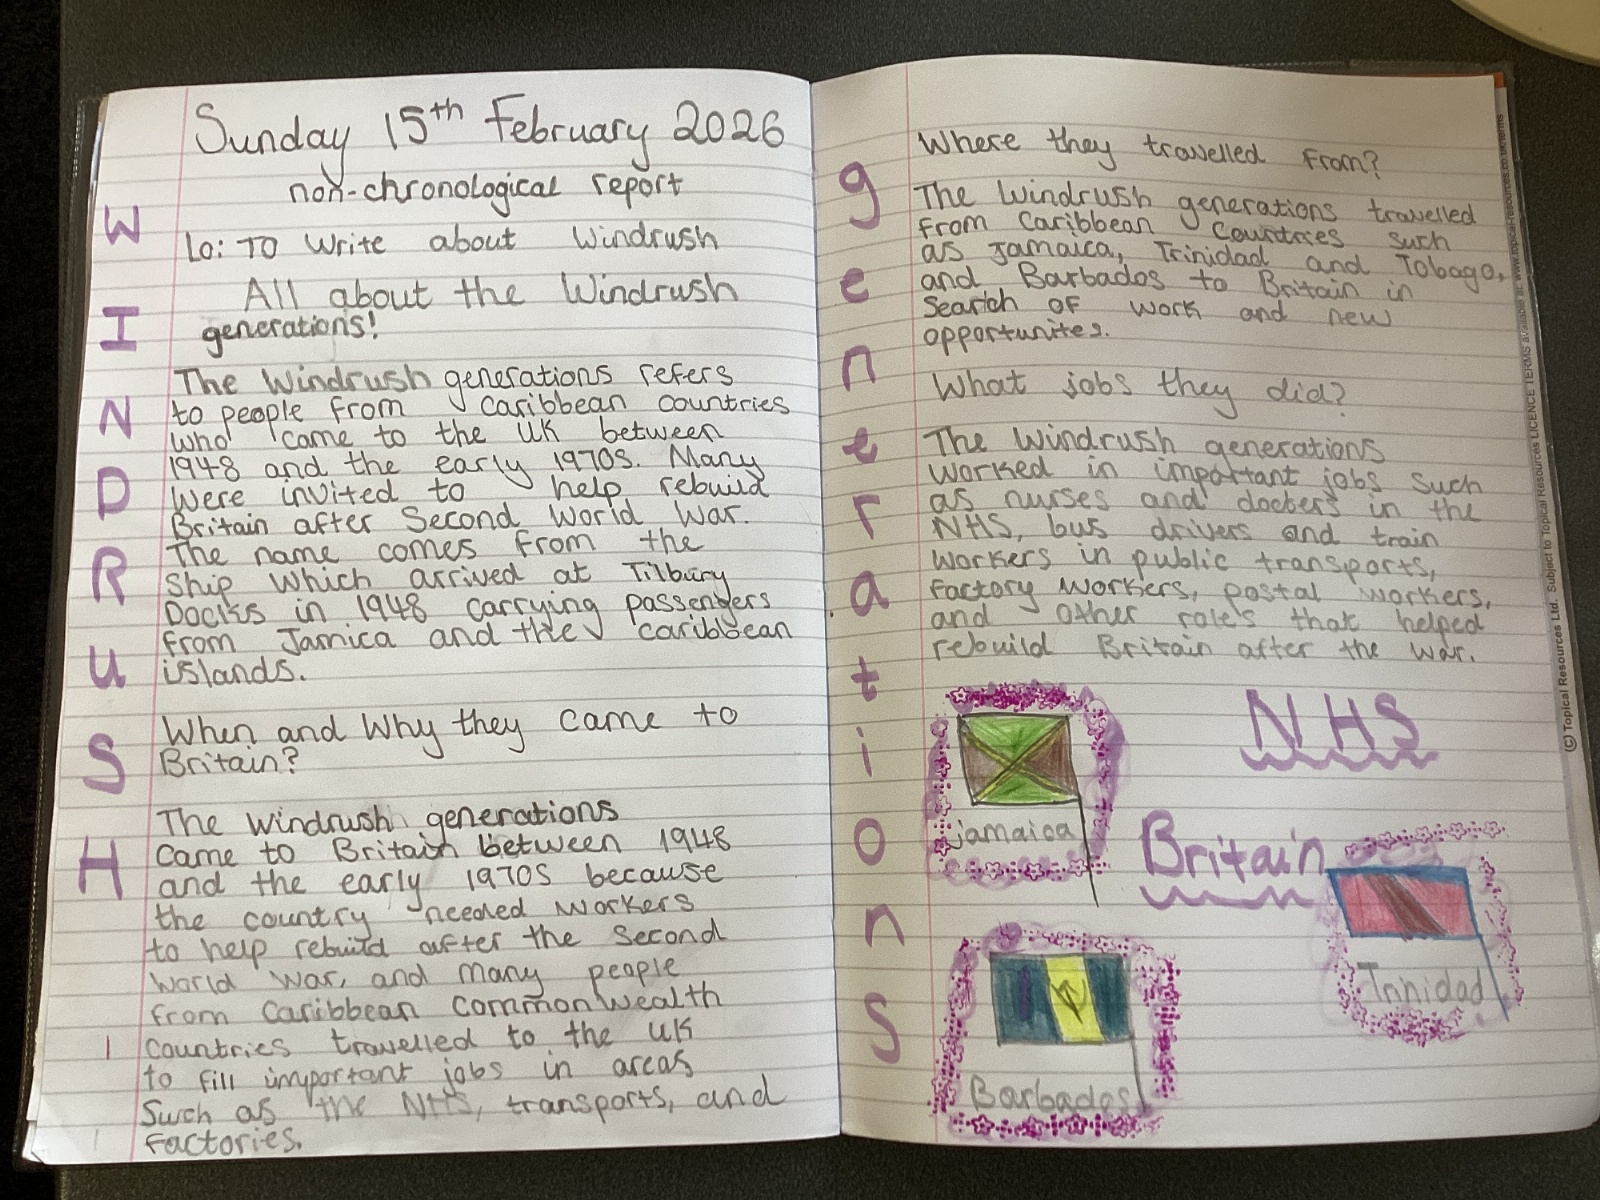 Sunday 15th February 2026
non-chronological report
Lo: TO Write about Windrush
All about the Windrush
generations!
The Windrush generations refers
to people from Caribbean countries
who came to the UK between
1948 and the early 1970s. Many
were invited to help rebuild
Britain after Second World War.
The name comes from the
Ship which arrived at Tilbury
Docks in 1948 carrying passengers
from Jamica and the caribbean
islands.
When and Why they came to
Britain?
The Windrush generations
came to Britain between 1948
and the early 1970s because
the country needed workers
to help rebuild after the Second
World War, and many people
from Caribbean Commonwealth
Countries travelled to the UK
to fill important jobs in areas
Such as the NHS, transports, and
factories.
WINDRUSH
Where they travelled from?
The Windrush generations travelled
from Caribbean Countries such
as Jamaica, Trinidad and Tobago,
and Barbados to Britain in
Search of work and new
opportunites.
What jobs they did?
The Windrush generations
worked in important jobs Such
as nurses and docters in the
NHS, bus drivers and train
workers in public transports,
factory workers, postal workers,
and other roles that helped
rebuild Britain after the war.
generations
NHS
jamaica
Britain
Trinidad
Barbados
(C) Topical Resources Ltd. Subject to Topical Resources LICENCE TERMS available at: www.topical-resources.co.uk/terms